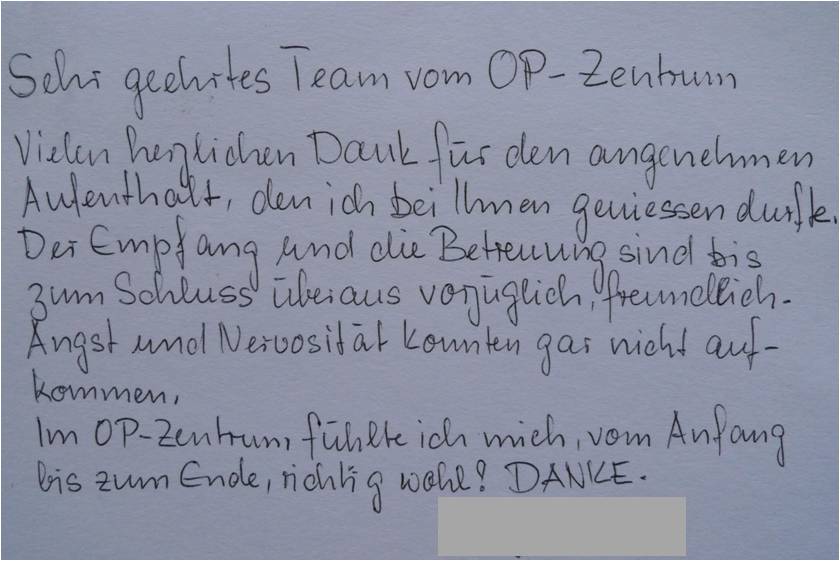 Sehr geehrtes Team vom OP-Zentrum
Vielen herzlichen Dank für den angenehmen
Aufenthalt, den ich bei Ihnen geniessen durfte.
Der Empfang und die Betreuung sind bis
zum Schluss überaus vorzüglich, freundlich.
Angst und Nervosität konnten gar nicht auf-
kommen.
Im OP-Zentrum fühlte ich mich, vom Anfang
bis zum Ende, richtig wohl! DANKE.